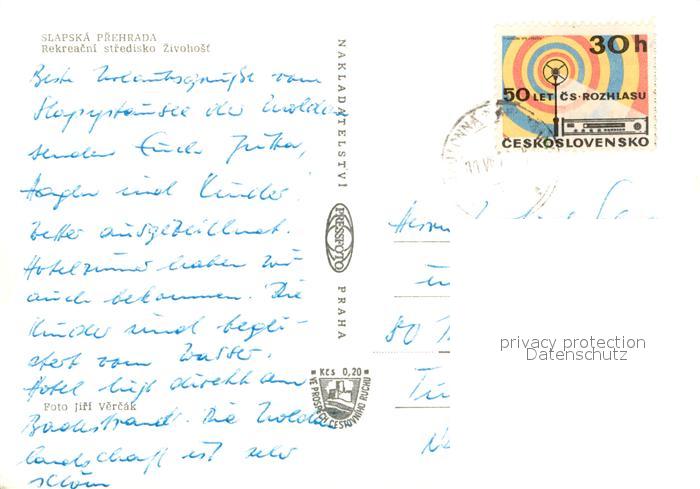 SLAPSKÁ PŘEHRADA
Rekreační středisko Živohošť
Beste Urlaubsgrüße vom
Slapystausee der Moldau
senden Euch Jutta,
Hagen und Kinder
Wetter ausgezeichnet.
Hotelzimmer haben wir
auch bekommen. Die
Kinder sind begei-
stert vom Wasser.
Hotel liegt direkt am
Foto Jiří Verčák
Badestrand. Die Moldau
landschaft ist sehr
schön
NAKLADATELSTVÍ
PRESSFOTO
PRAHA
Kčs 0,20
VE PROSPĚCH CESTOVNÍHO RUCHU
30h
50 LET ČS·ROZHLASU
ČESKOSLOVENSKO
Herrn
80
privacy protection
Datenschutz